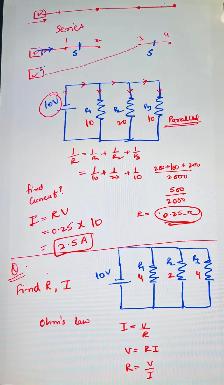 Series
1 2
3 4
S
S
10V R₁ R₂ R₃ Parallel
10 20 10
1/R = 1/R₁ + 1/R₂ + 1/R₃
= 1/10 + 1/20 + 1/10
200+100+200
2000
500
2000
R = 0.25Ω
find Current?
I = RV
= 0.25 × 10
= 2.5A
Q
Find R, I
10V R₁ R₂ R₃
4 2 4
Ohm's law
I = V/R
V = RI
R = V/I